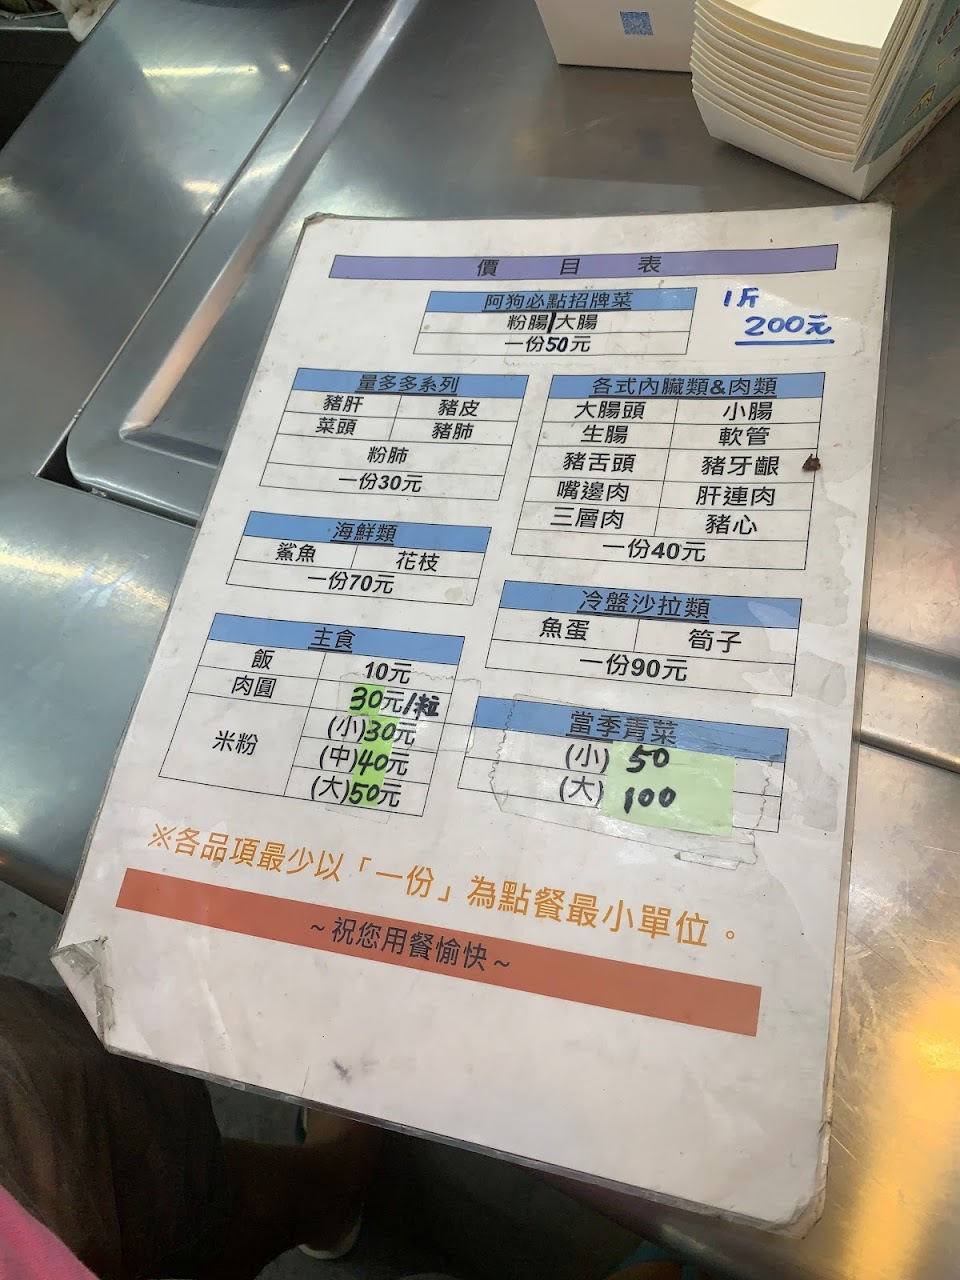 價 目 表
阿狗必點招牌菜
粉腸 大腸
一份50元
1斤
200元
量多多系列
豬肝 豬皮
菜頭 豬肺
粉肺
一份30元
各式內臟類&肉類
大腸頭 小腸
生腸 軟管
豬舌頭 豬牙齦
嘴邊肉 肝連肉
三層肉 豬心
一份40元
海鮮類
鯊魚 花枝
一份70元
冷盤沙拉類
魚蛋 筍子
一份90元
主食
飯 10元
肉圓 30元/粒
米粉 (小)30元
(中)40元
(大)50元
當季青菜
(小) 50
(大) 100
※各品項最少以「一份」為點餐最小單位。
~祝您用餐愉快~